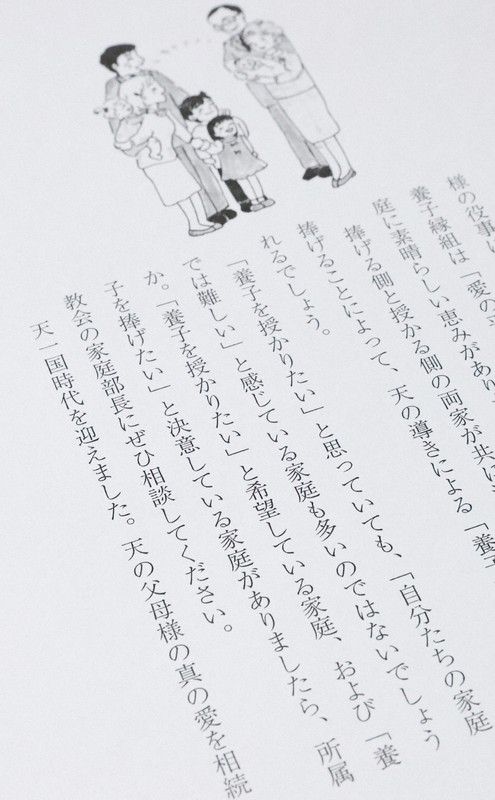 様の役事
養子縁組は「愛の
庭に素晴らしい恵みがあり
捧げる側と授かる側の両家が共に
捧げることによって、天の導きによる「養子
れるでしょう。
「養子を授かりたい」と思っていても、「自分たちの家庭
では難しい」と感じている家庭も多いのではないでしょう
か。「養子を授かりたい」と希望している家庭、および「養
子を捧げたい」と決意している家庭がありましたら、所属
教会の家庭部長にぜひ相談してください。
天一国時代を迎えました。天の父母様の真の愛を相続